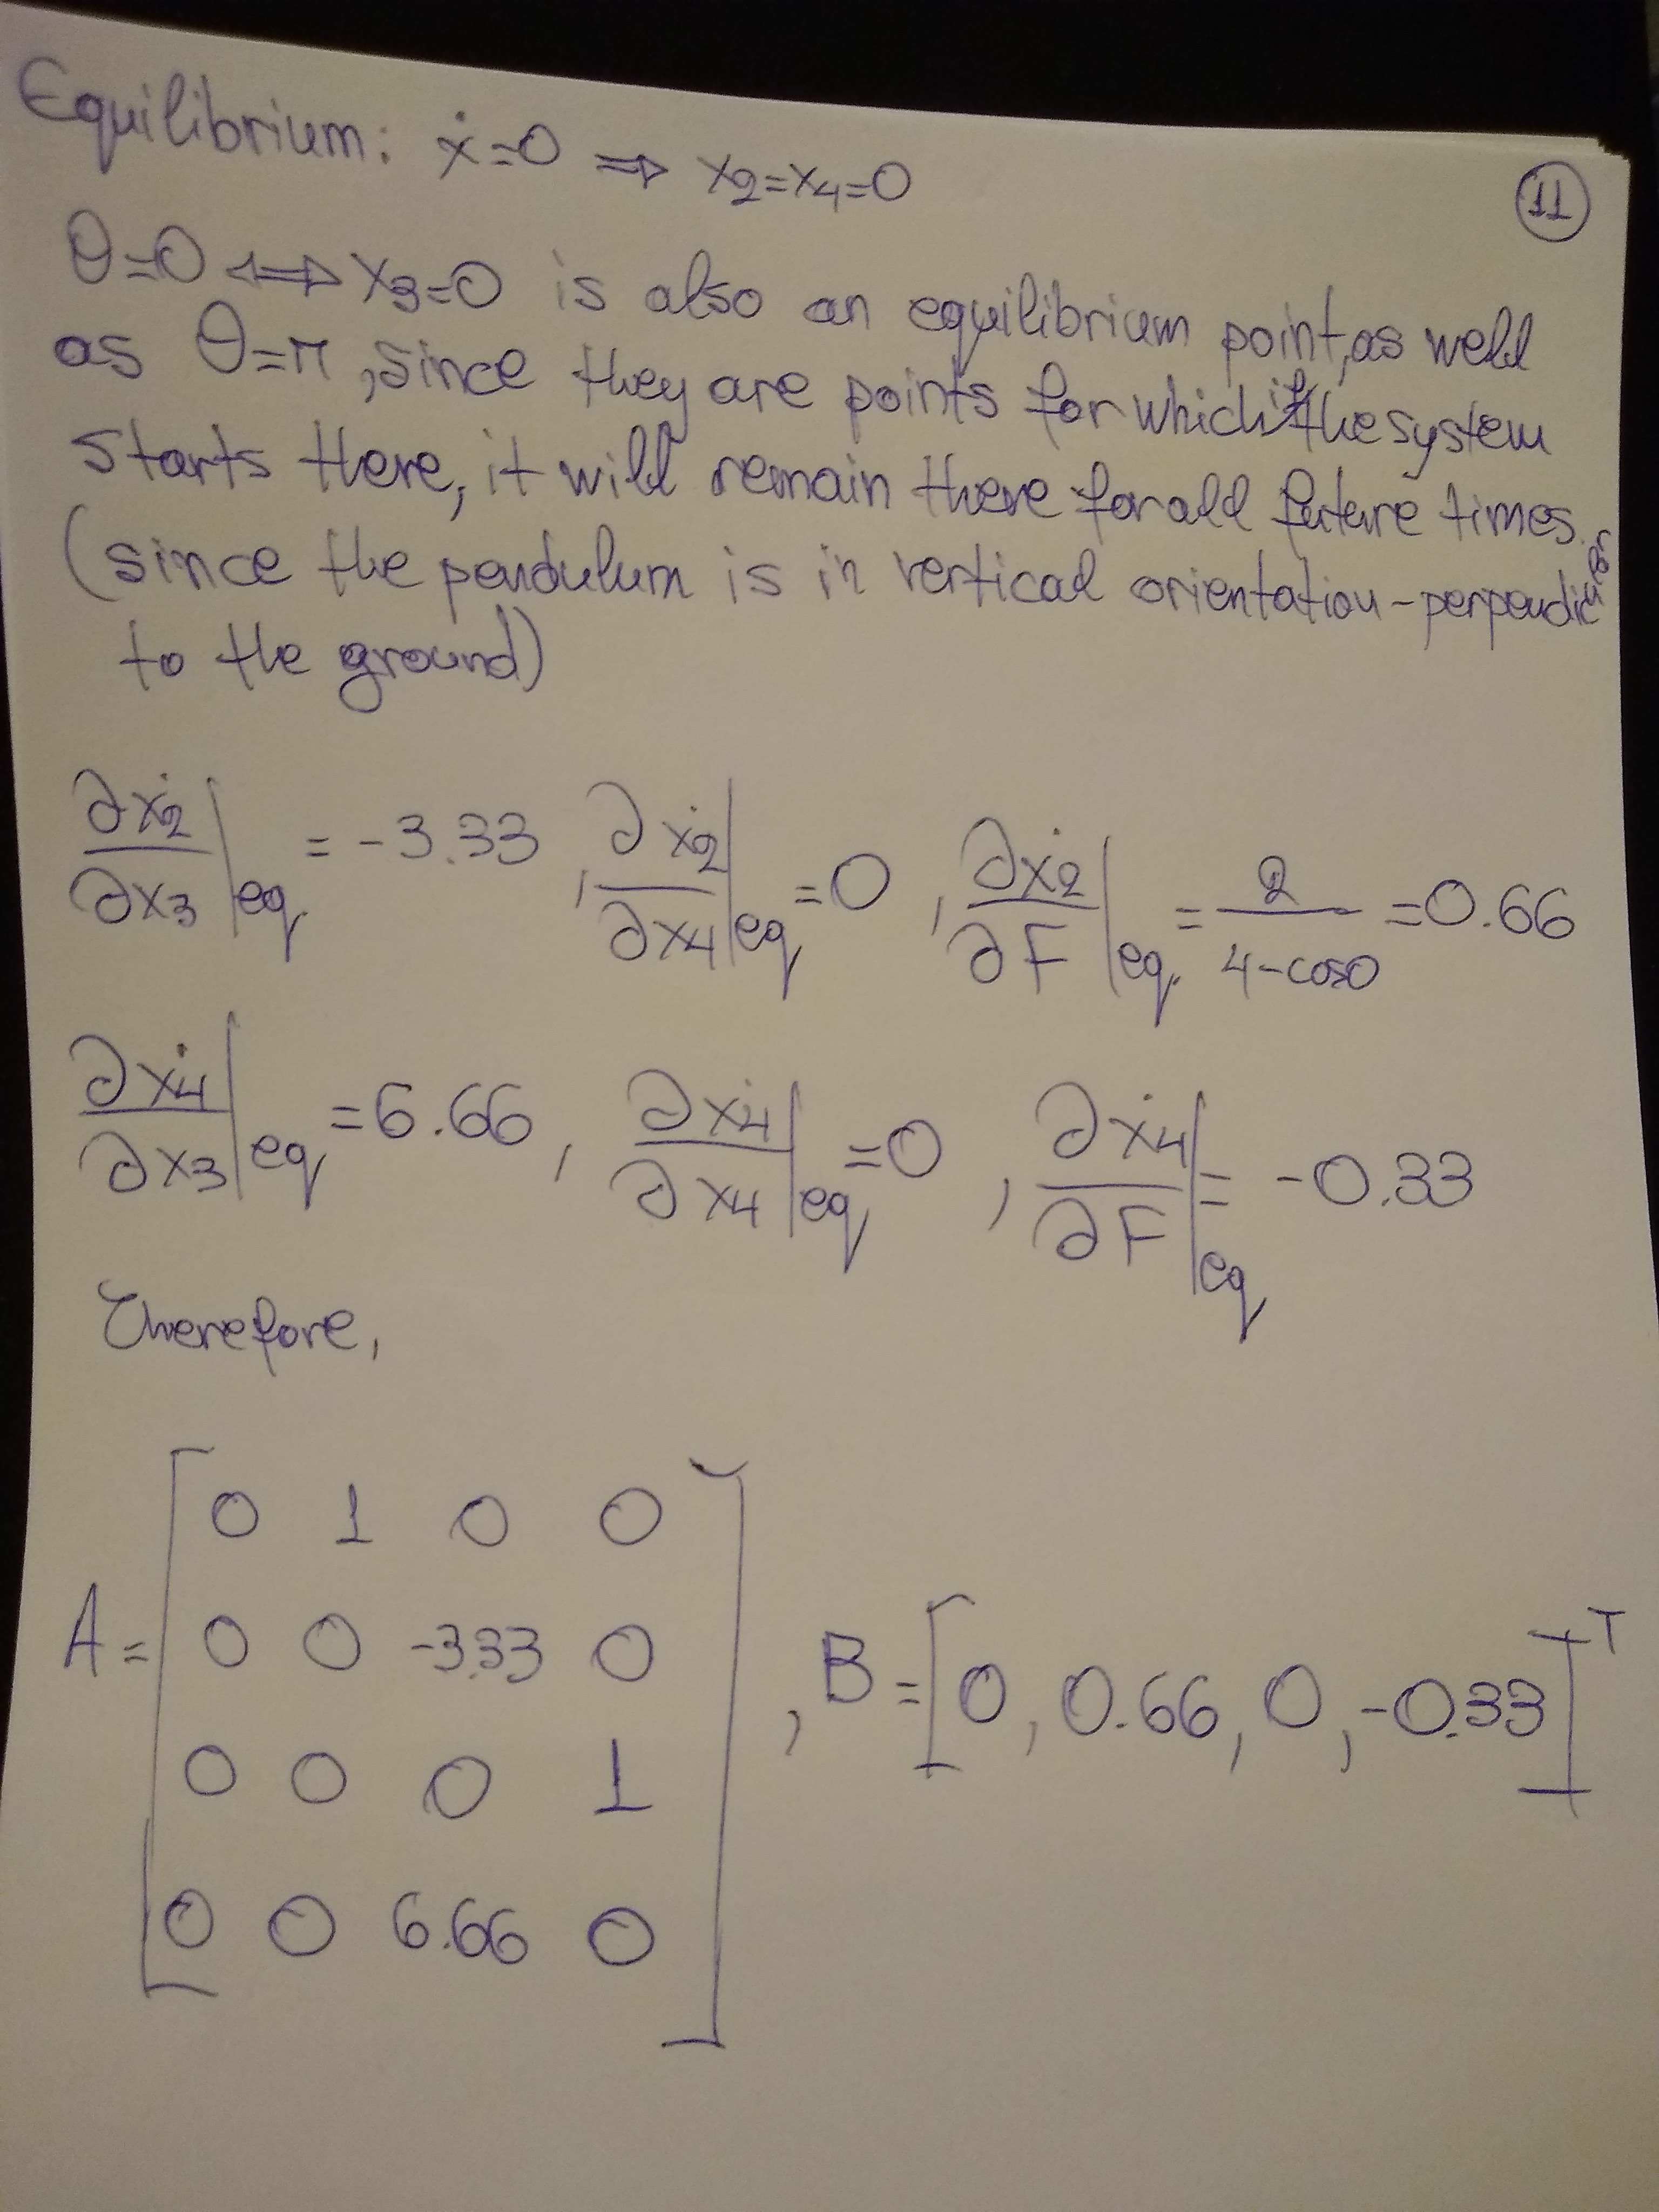 Equilibrium: ẋ=0 ⇒ x₂=x₄=0
11
θ=0 ⇔ x₃=0 is also an equilibrium point, as well
as θ=π, since they are points for which if the system
starts there, it will remain there for all future times.
(since the pendulum is in vertical orientation-perpendicular
to the ground)
∂ẋ₂/∂x₃|eq. = -3.33, ∂ẋ₂/∂x₄|eq = 0, ∂ẋ₂/∂F|eq. = 2/(4-cos0) = 0.66
∂ẋ₄/∂x₃|eq = 6.66, ∂ẋ₄/∂x₄|eq = 0, ∂ẋ₄/∂F|eq = -0.33
Therefore,
A = [0 1 0 0
0 0 -3.33 0
0 0 0 1
0 0 6.66 0]
, B = [0, 0.66, 0, -0.33]ᵀ